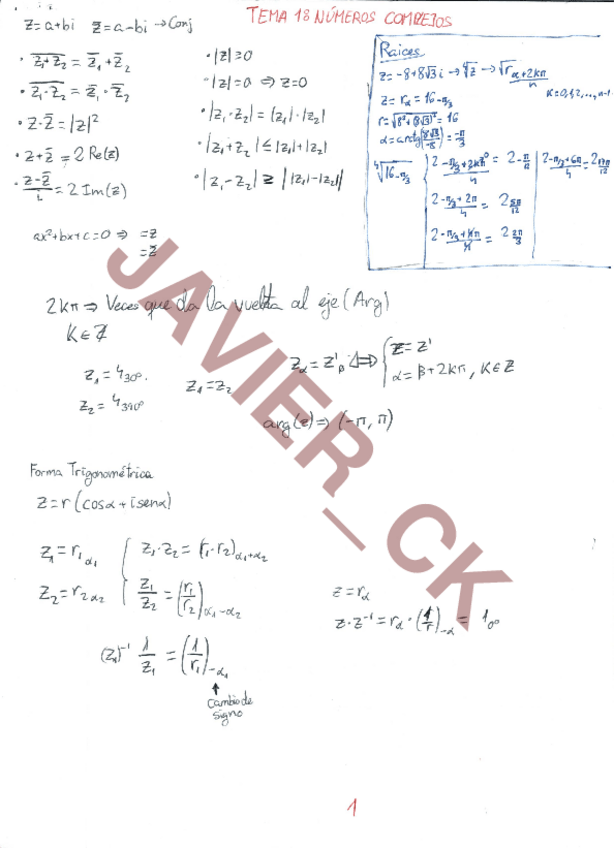 TEMA 18 NÚMEROS COMPLEJOS
z=a+bi z̄=a-bi → Conj
· \overline{z₁+z₂} = z̄₁+z̄₂
· \overline{z₁·z₂} = z̄₁·z̄₂
· z·z̄ = |z|²
· z+z̄ = 2 Re(z)
· (z-z̄)/i = 2 Im(z)
ax²+bx+c=0 ⇒ =z
=z̄
· |z|≥0
· |z|=0 ⇒ z=0
· |z₁·z₂| = |z₁|·|z₂|
· |z₁+z₂| ≤ |z₁|+|z₂|
· |z₁-z₂| ≥ ||z₁|-|z₂||
Raíces
z=-8+8√3 i → ⁴√z → ⁿ√r_{(α+2kπ)/n}
K=0,1,2,...,n-1
z = r_α = 16_{-π/3}
r=√(8²+(8√3)²) = 16
α=arctg(8√3/-8) = -π/3
⁴√16_{-π/3}
2_{(-π/3+2kπ⁰)/4} = 2_{-π/12}
2_{(-π/3+2π)/4} = 2_{5π/12}
2_{(-π/3+4π)/4} = 2_{2π/3}
2_{(-π/3+6π)/4} = 2_{17π/12}
2kπ ⇒ Veces que da la vuelta al eje (Arg)
K∈Z
z₁=4_{30º}
z₂=4_{390º}
z₁=z₂
z_α = z'_β ⟺ { z=z'
α=β+2kπ, K∈Z
arg(z) ⇒ (-π, π)
Forma Trigonométrica
z=r(cosα+isenα)
z₁=r₁_{α₁} { z₁·z₂=(r₁·r₂)_{α₁+α₂}
z₂=r₂_{α₂} z₁/z₂=(r₁/r₂)_{α₁-α₂}
(z₁)⁻¹ 1/z₁ = (1/r₁)_{-α₁}
Cambio de
signo
z=r_α
z·z⁻¹=r_α·(1/r)_{-α} = 1_{0º}
JAVIER_CK
1